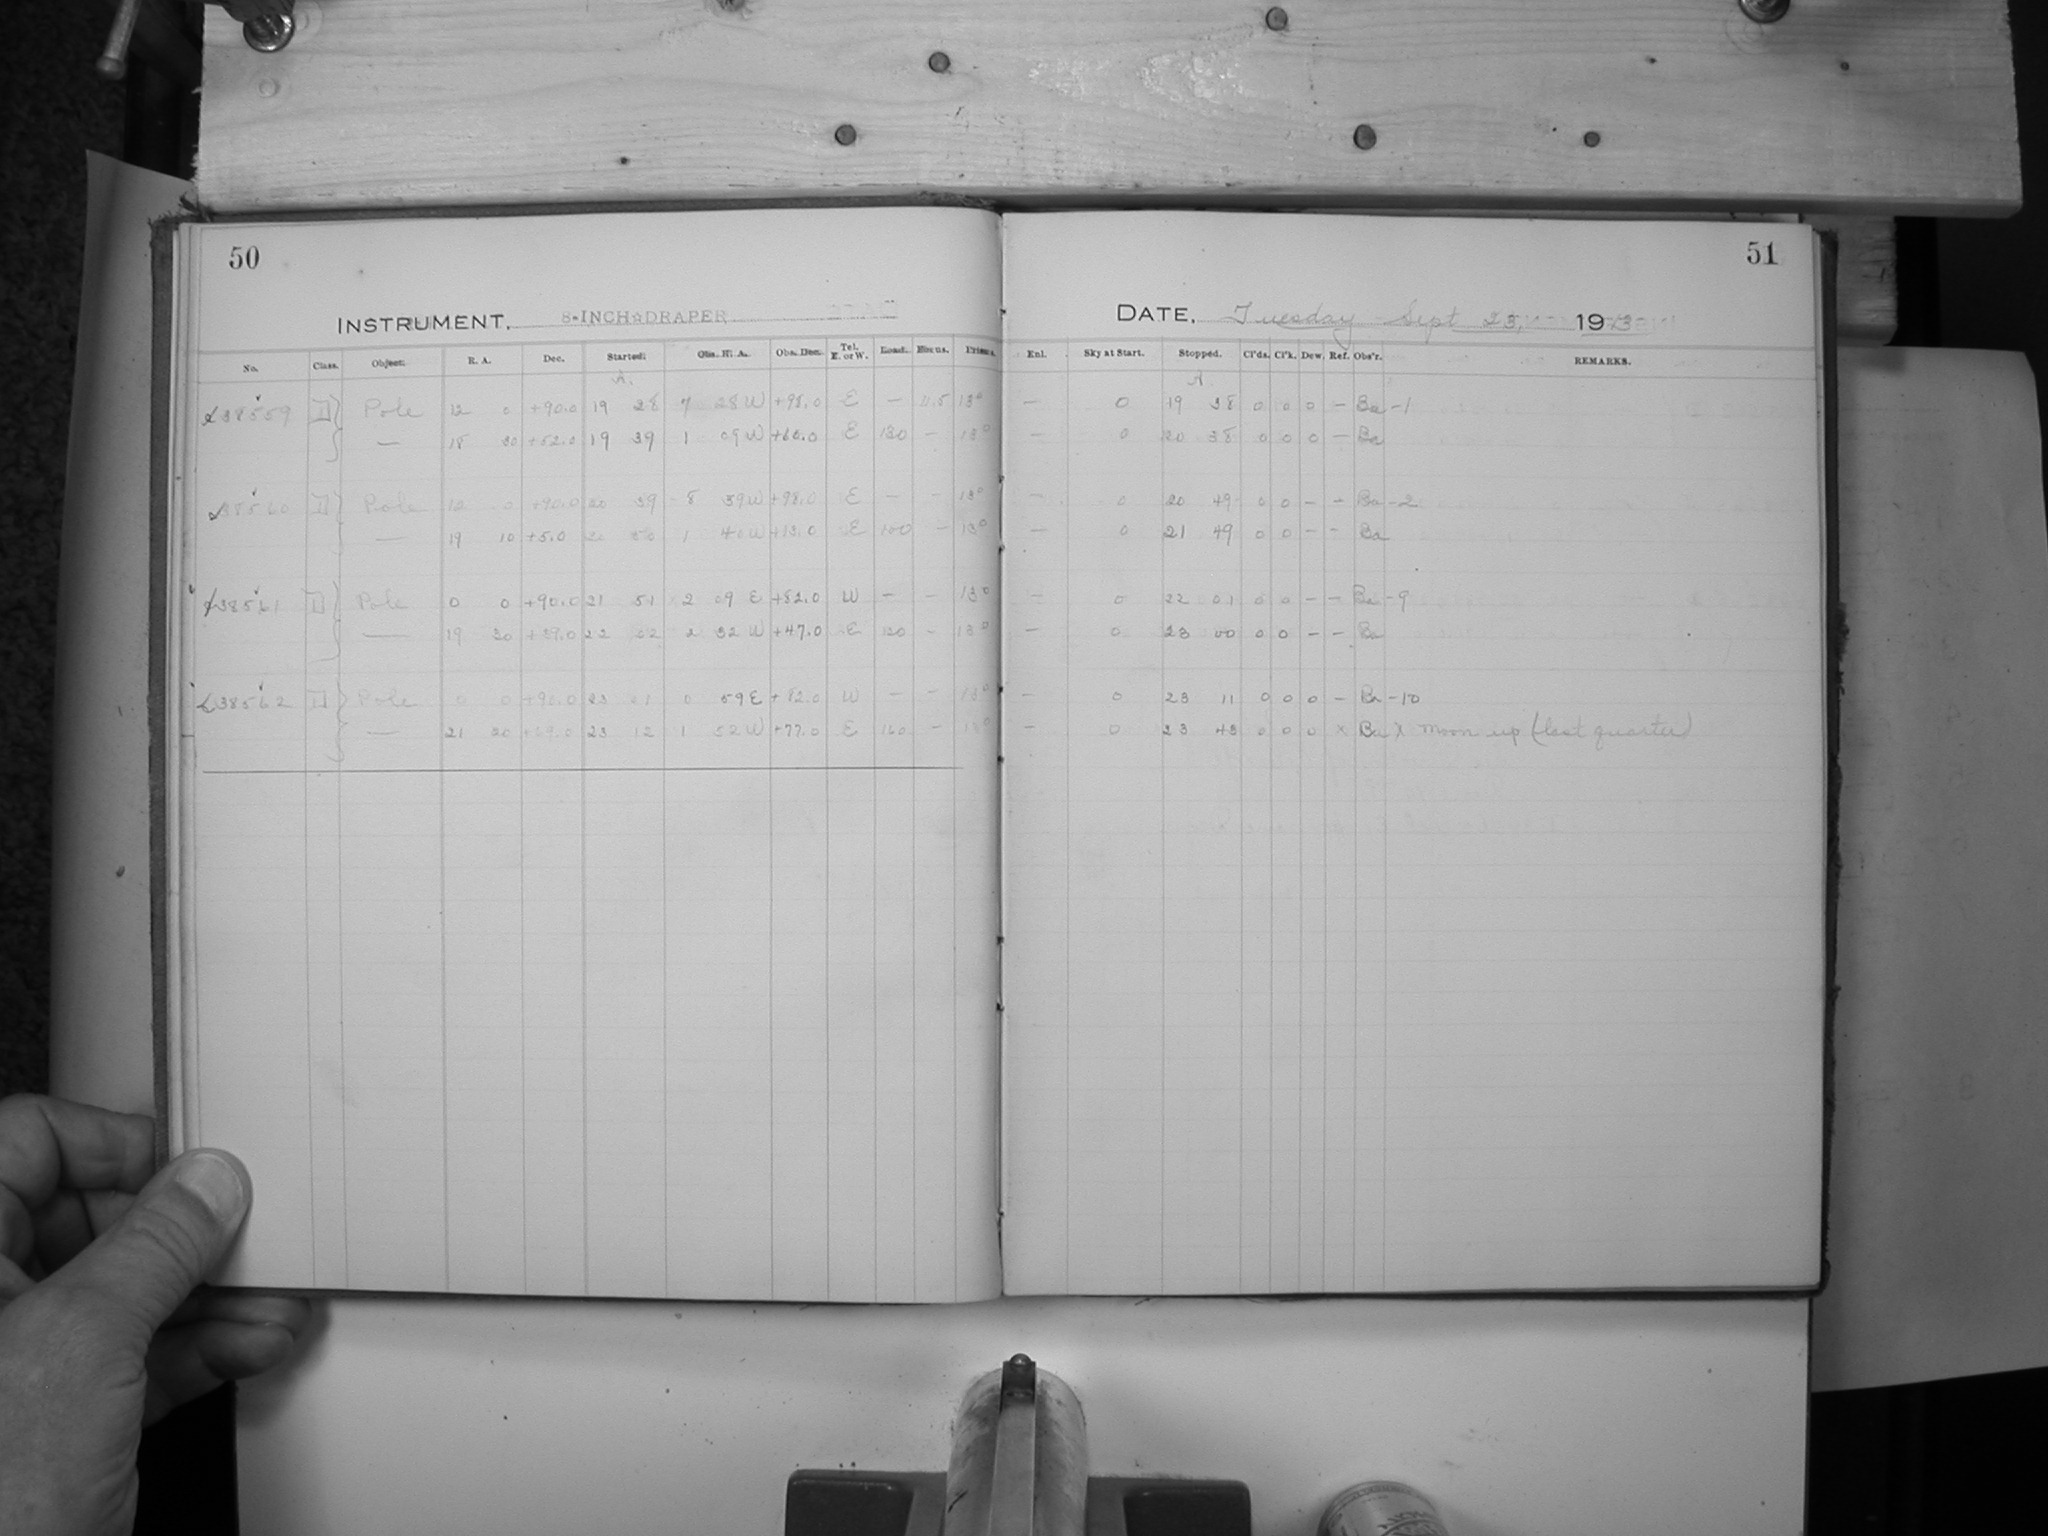 50
INSTRUMENT. 8-INCH DRAPER
No. Class. Object. R. A. Dec. Started. Obs. H. A. Obs. Dec. Tel. E. or W.
A.
38559 Pole 12 0 +90.0 19 28 7 28 W +98.0 E — 11.5 13°
— 18 30 +52.0 19 39 1 09 W +60.0 E — 13°
38560 Pole 12 0 +90.0 20 39 8 39 W +98.0 E — — 13°
— 19 10 +5.0 20 50 1 40 W +13.0 E — 13°
38561 Pole 0 0 +90.0 21 51 2 09 E +82.0 W — — 13°
— 19 30 +39.0 22 02 2 32 W +47.0 E — 13°
38562 Pole 0 0 +90.0 23 01 0 59 E +82.0 W — — 13°
— 21 20 +69.0 23 12 1 52 W +77.0 E — 13°
51
DATE, Tuesday Sept 23, 1913
Enl. Sky at Start. Stopped. Cl'ds. Cl'k. Dew. Ref. Obs'r. REMARKS.
A.
— 0 19 38 0 0 0 — Ba -1
— 0 20 38 0 0 0 — Ba
— 0 20 49 0 0 — — Ba -2
— 0 21 49 0 0 — — Ba
— 0 22 01 0 0 — — Ba -9
— 0 23 00 0 0 — — Ba
— 0 23 11 0 0 0 — Ba -10
— 0 23 43 0 0 0 x Ba x moon up (last quarter)